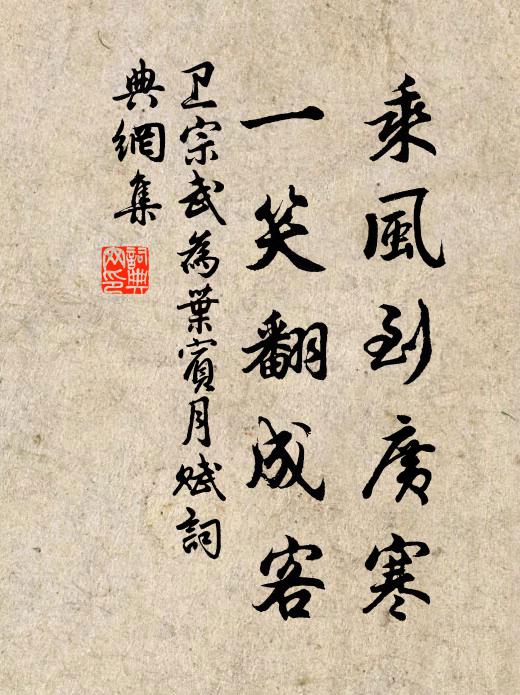 乘風到廣寒
一笑翻成客
卫宗武為葉賓月賦詞
典網集
詞典